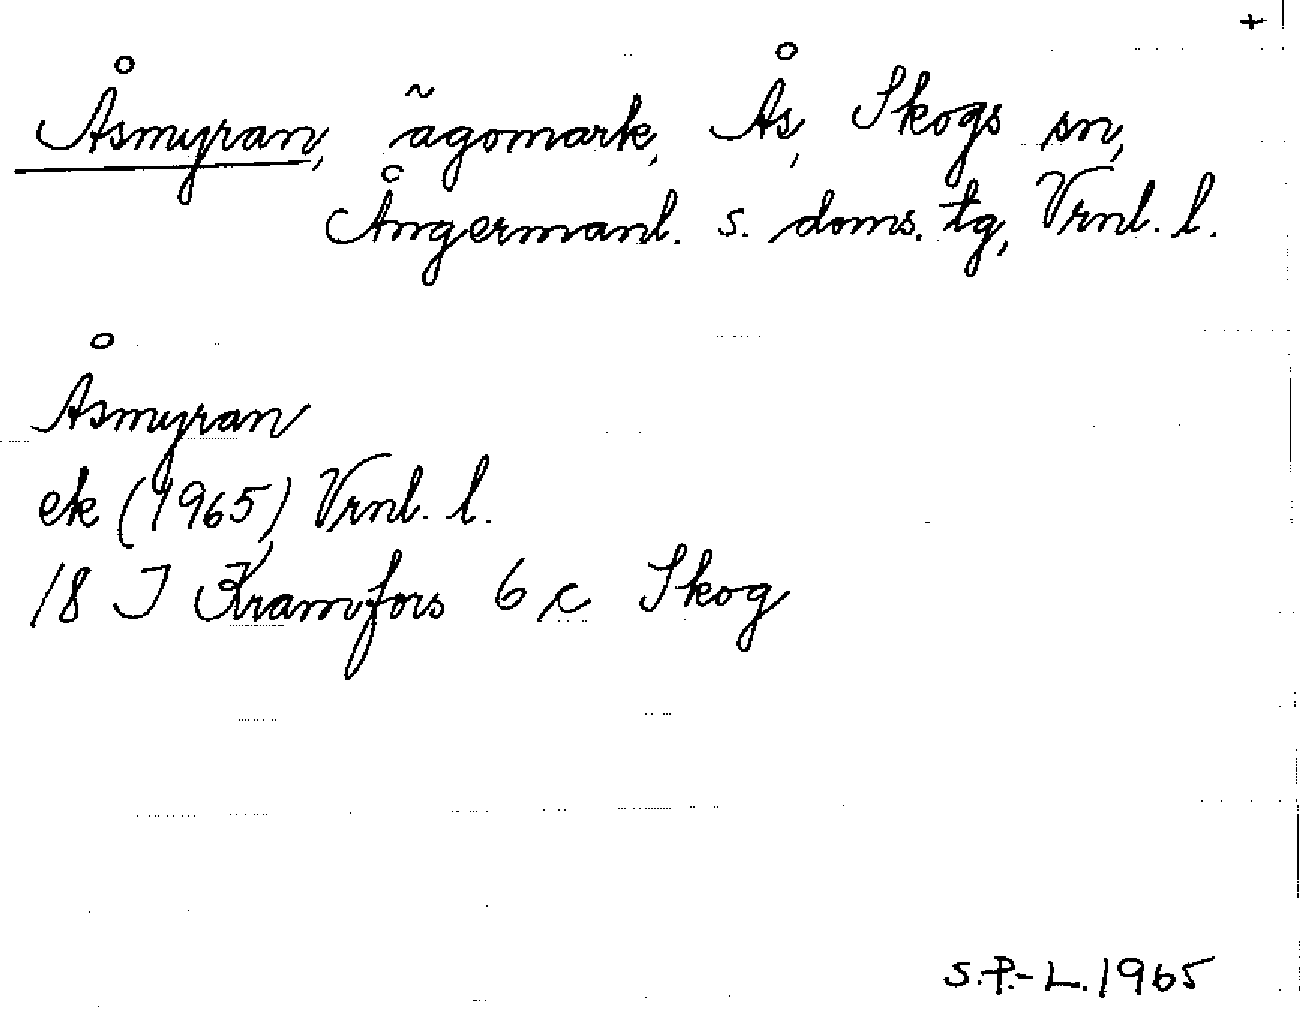 +
Åsmyran, ägomark, Ås, Skogs sn,
Ångermanl. s. doms. tg, Vrnl. l.
Åsmyran
ek (1965) Vrnl. l.
18 J Kramfors 6 c Skog
S.P.-L. 1965